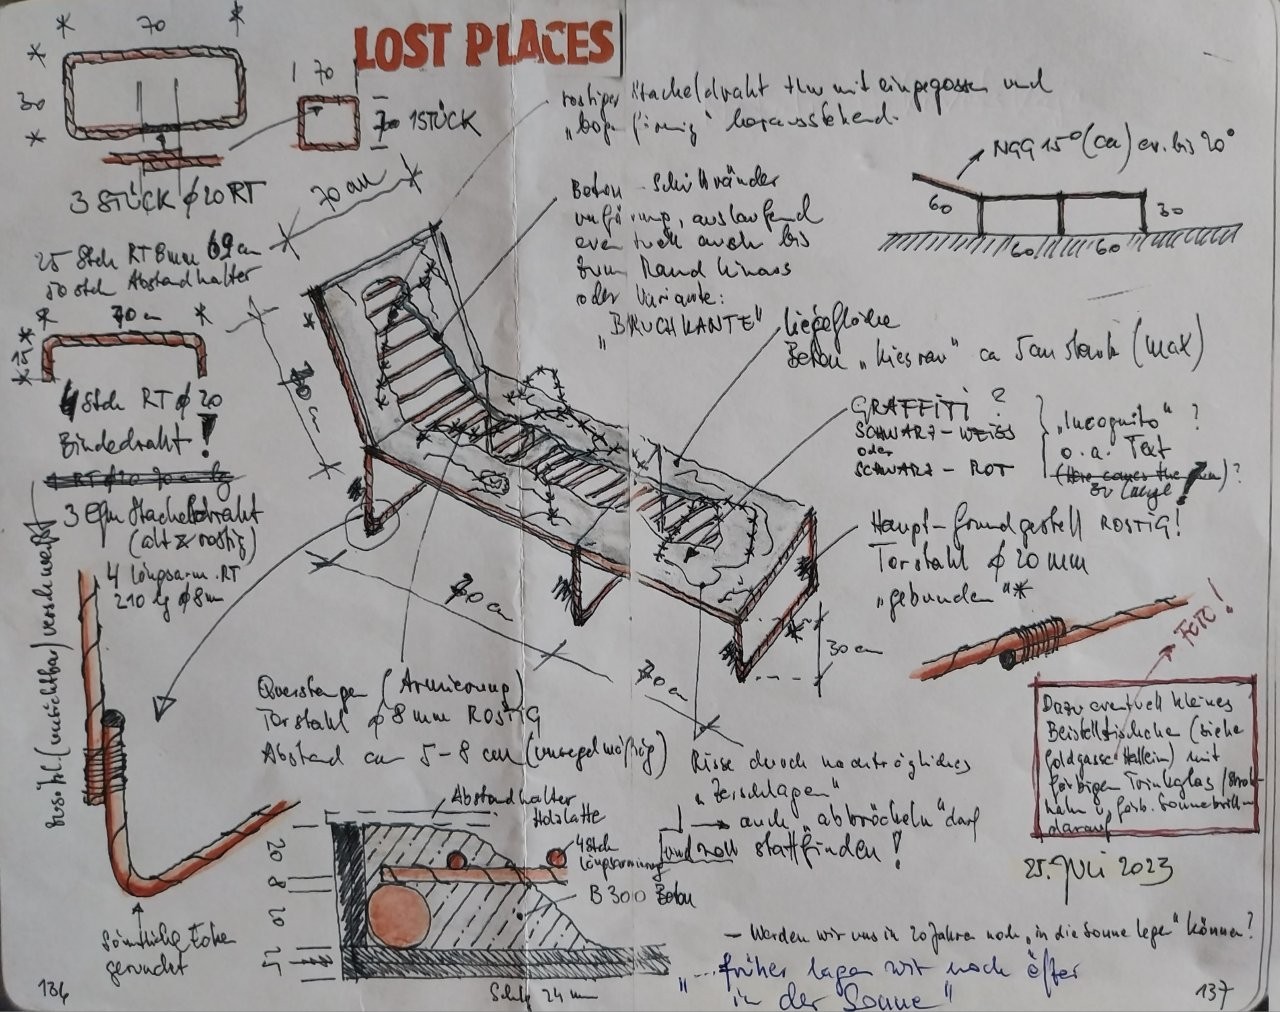 LOST PLACES
70
30
3 STÜCK ϕ 20 RT
70
1 STÜCK
70 cm
25 Stck RT 8mm 69 cm
50 Stck Abstandhalter
70 cm
15
4 Stck RT ϕ 20
Bindedraht!
3 lfm Stacheldraht
(alt & rostig)
4 Längsarm. RT
210 lg ϕ 8 mm
(unsichtbar) verschweißt
rostiger Stacheldraht mit eingegossen und
herausstehend
Beton Schütt ränder
auslaufend
eventuell auch bis
zum Rand hinaus
oder Variante:
"BRUCHKANTE"
NGG 15° (ca) ev. bis 20°
60
30
60 60
Liegefläche
Beton "kiesrau" ca 5cm stark (max)
GRAFFITI ?
SCHWARZ-WEISS
oder
SCHWARZ-ROT
"Incognito" ?
o.a. Text
(Here comes the sun) ?
Haupt-Grundgestell ROSTIG!
Torstahl ϕ 20 mm
"gebunden" *
70 cm
70 cm
30 cm
Querstangen (Armierung)
Torstahl ϕ 8 mm ROSTIG
Abstand ca 5-8 cm (unregelmäßig)
Risse durch nachträgliches
"Zerschlagen"
→ auch "abbröckeln" darf
und soll stattfinden!
FOTO!
Dazu eventuell kleines
Beistelltischchen (siehe
Goldgasse Hallein) mit
farbigen Trinkglas /Stroh-
halm u. färb. Sonnenbrille
darauf
25. JULI 2023
Abstandhalter
Holzlatte
4 Stck
Längsarmierung
B 300 Beton
20
8
20
1,5
24 mm
Sämtliche Ecken
gerundet
— Werden wir uns in 20 Jahren noch "in die Sonne legen" können?
"... früher lagen wir noch öfter
in der Sonne"
136
137